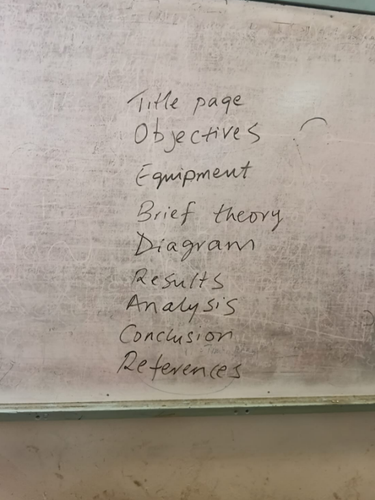 Title page
Objectives
Equipment
Brief theory
Diagram
Results
Analysis
Conclusion
References